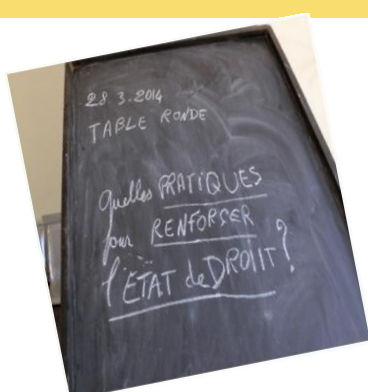 28 3.2014
TABLE RONDE
quelles PRATIQUES
pour RENFORSER
l'ËTAT de DROIIT?